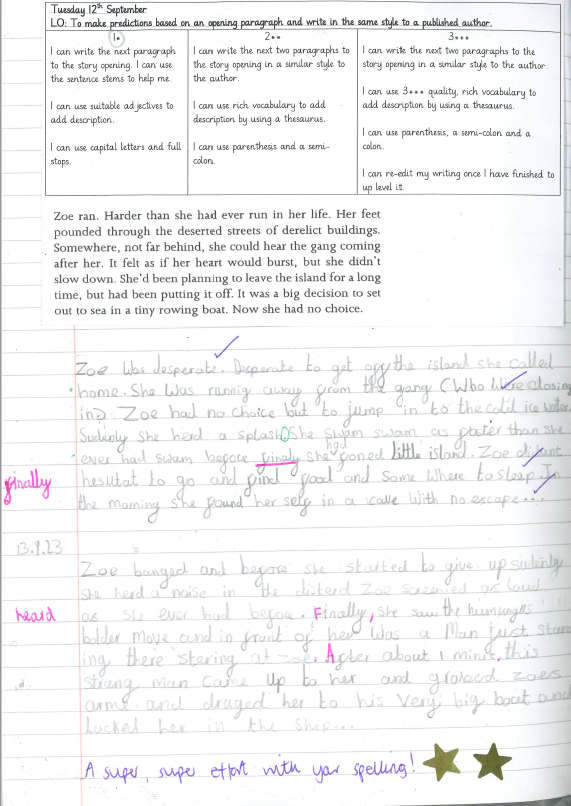 Tuesday 12th September
LO: To make predictions based on an opening paragraph and write in the same style to a published author.
1*
I can write the next paragraph
to the story opening. I can use
the sentence stems to help me.
I can use suitable adjectives to
add description.
I can use capital letters and full
stops.
2**
I can write the next two paragraphs to
the story opening in a similar style to
the author.
I can use rich vocabulary to add
description by using a thesaurus.
I can use parenthesis and a semi-
colon.
3***
I can write the next two paragraphs to the
story opening in a similar style to the author.
I can use 3*** quality, rich vocabulary to
add description by using a thesaurus.
I can use parenthesis, a semi-colon and a
colon.
I can re-edit my writing once I have finished to
up level it.
Zoe ran. Harder than she had ever run in her life. Her feet
pounded through the deserted streets of derelict buildings.
Somewhere, not far behind, she could hear the gang coming
after her. It felt as if her heart would burst, but she didn't
slow down. She'd been planning to leave the island for a long
time, but had been putting it off. It was a big decision to set
out to sea in a tiny rowing boat. Now she had no choice.
Zoe was desperate. Desperate to get off the island she called
home. She was runnig away from the gang (Who were closing
in). Zoe had no choice but to jump in to the cold ice water.
Sudenly she herd a splash. She swam swam as faster than she
ever had swam before finaly she had foned little island. Zoe
finally
hesutat to go and find food and some where to sleep. In
the morning she found her self in a cave with no escape...
13.9.23
Zoe banged and before she started to give up sudenly
she herd a noise in the distend Zoe screamed as loud
heard
as she ever had before. Finally, she saw the humunges
bolder move and in front of her was a Man just stan
ing there stering at zoe. After about 1 minit, this
strung man came up to her and grabed zoes
arms and draged her to his very big boat and
locked her in the ship...
A super, super effort with your spelling!